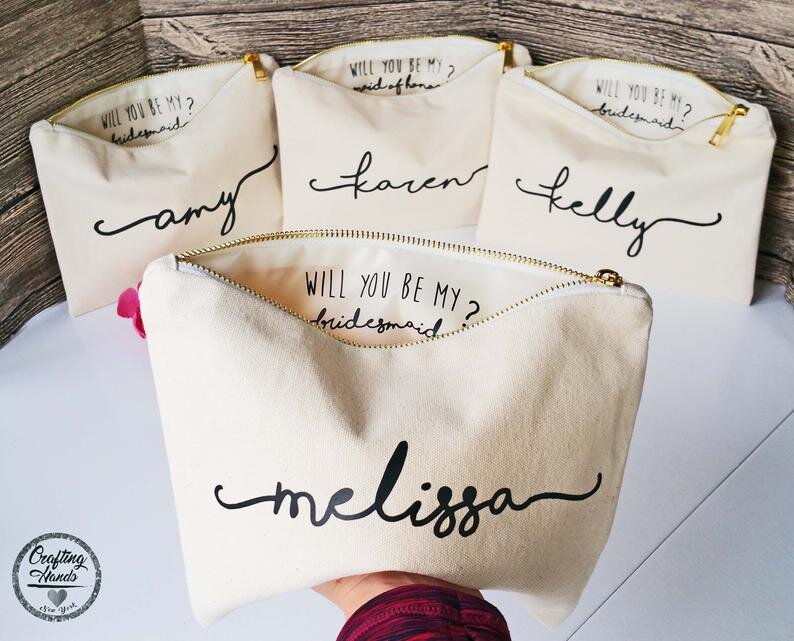 WILL YOU BE MY
bridesmaid?
amy
WILL YOU BE MY
maid of honor?
karen
WILL YOU BE MY
bridesmaid?
kelly
WILL YOU BE MY
bridesmaid?
melissa
Crafting
Hands
New York